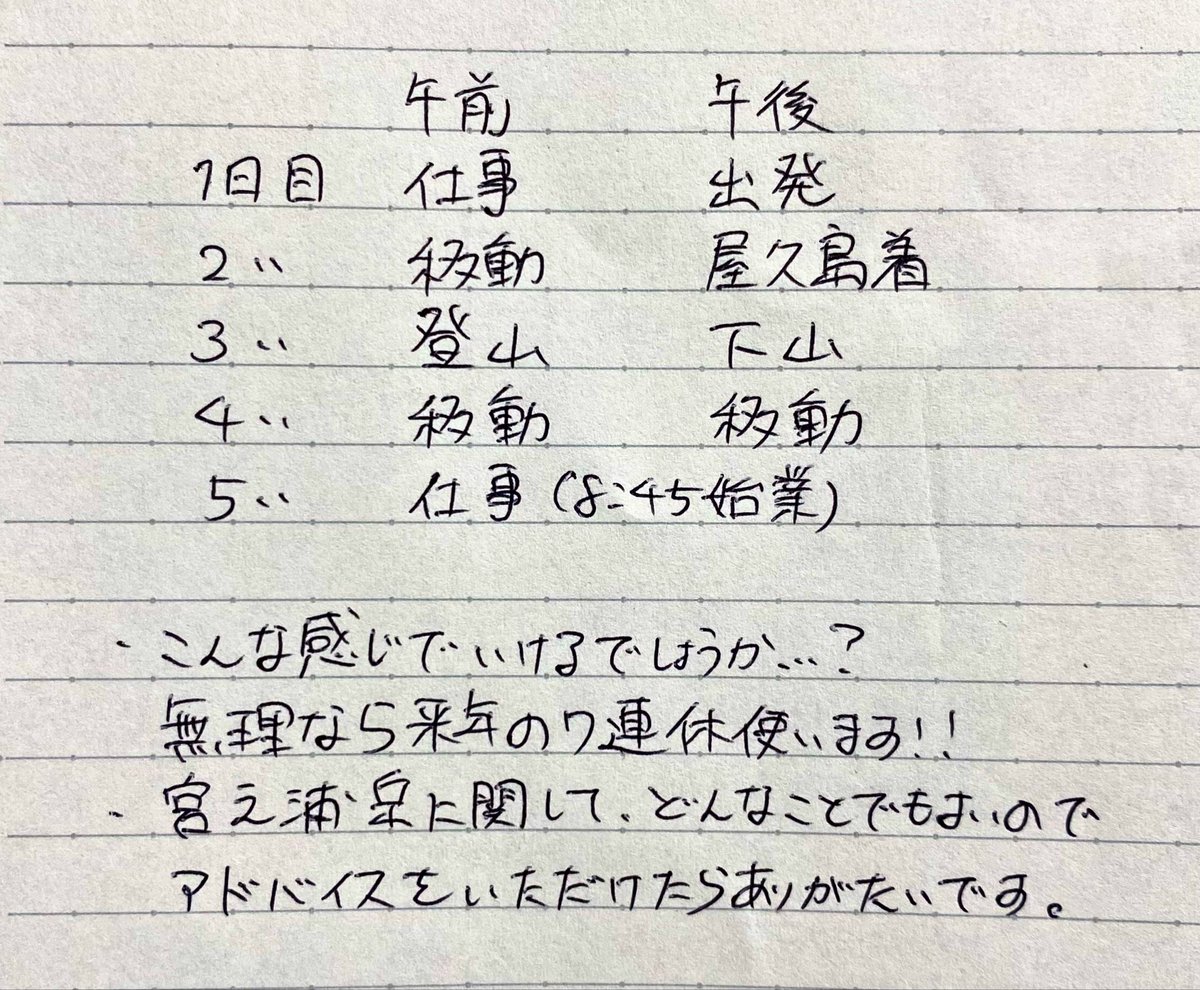 午前 午後
1日目 仕事 出発
2〃 移動 屋久島着
3〃 登山 下山
4〃 移動 移動
5〃 仕事(8:45始業)
・こんな感じでいけるでしょうか…?
無理なら来年の7連休使います!!
・宮之浦岳に関して、どんなことでもよいので
アドバイスをいただけたらありがたいです。